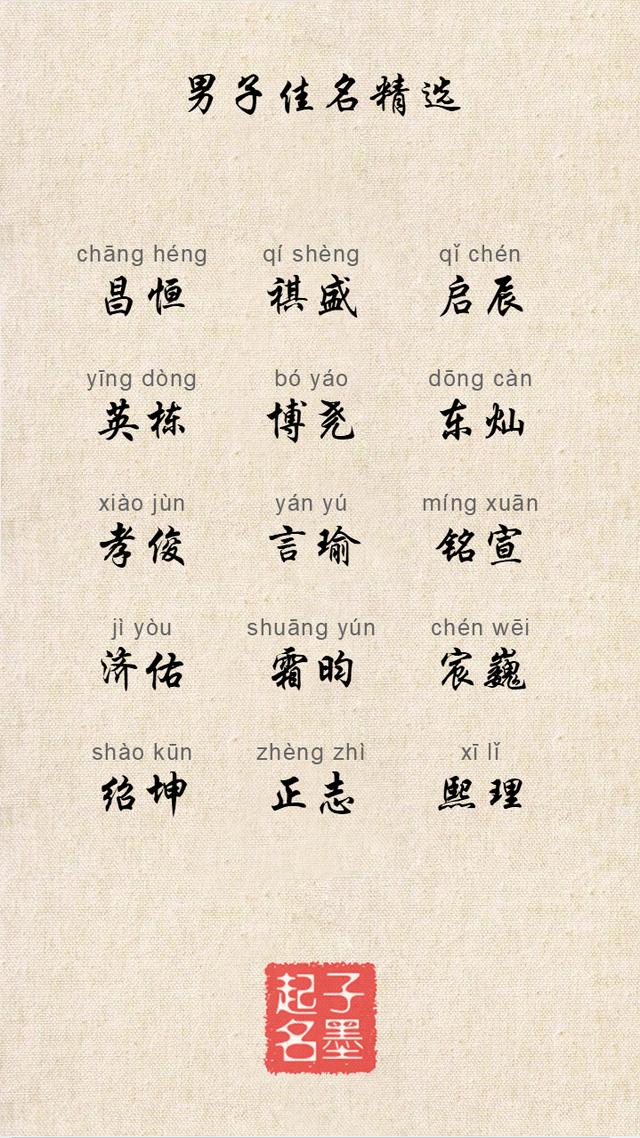 男子佳名精选
chāng héng qí shèng qǐ chén
昌恒 祺盛 启辰
yīng dòng bó yáo dōng càn
英栋 博尧 东灿
xiào jùn yán yú míng xuān
孝俊 言瑜 铭宣
jì yòu shuāng yún chén wēi
济佑 霜昀 宸巍
shào kūn zhèng zhì xī lǐ
绍坤 正志 熙理
子墨
起名